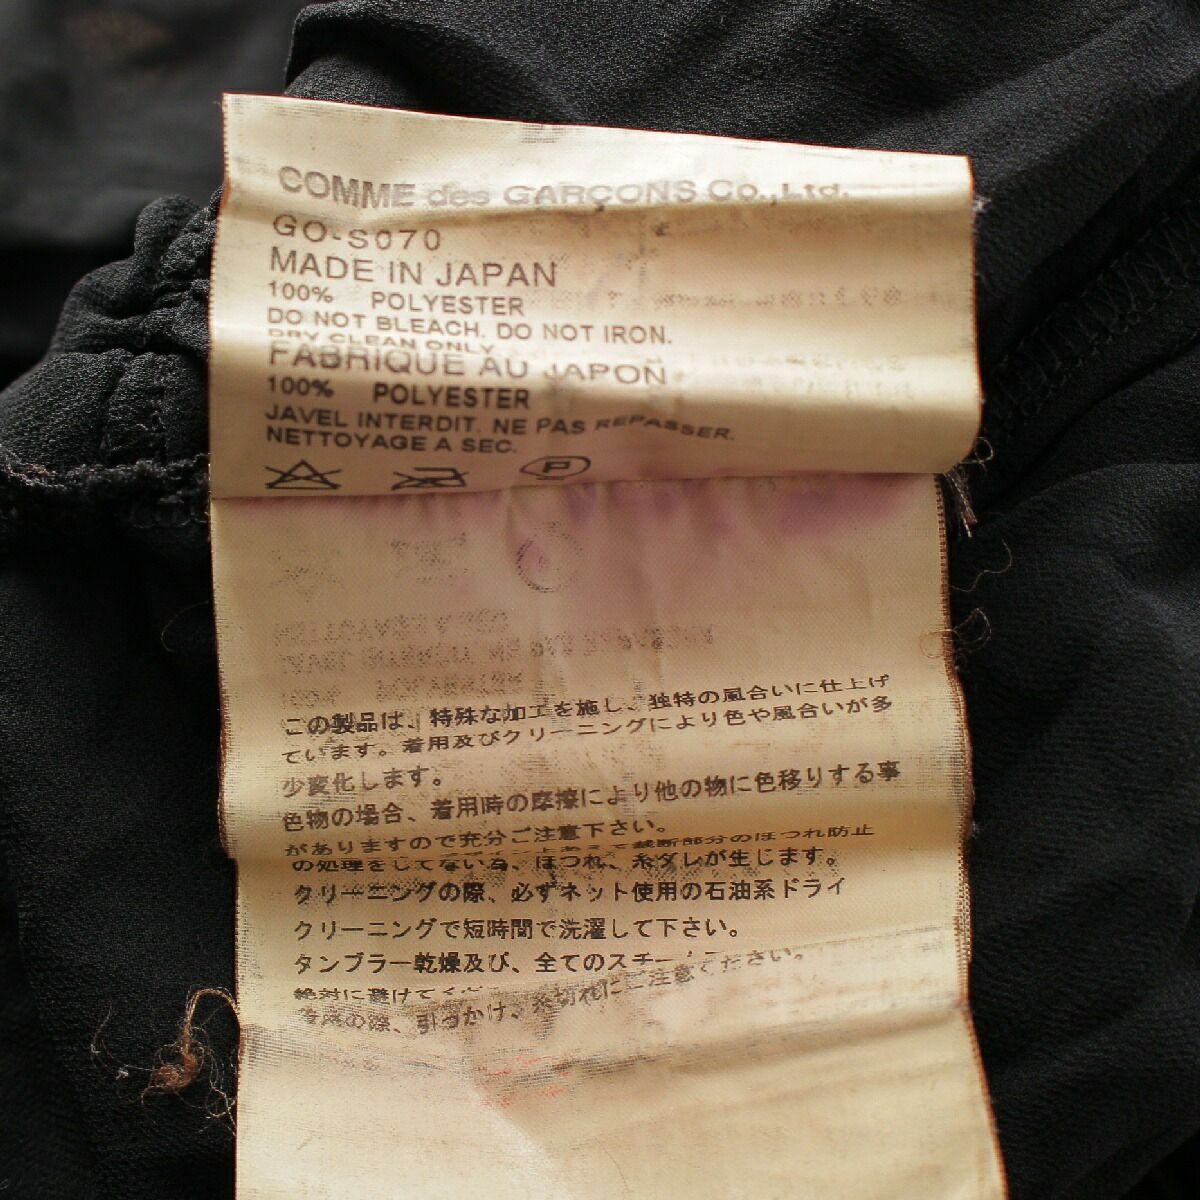 COMME des GARÇONS Co.,Ltd.
GO-S070
MADE IN JAPAN
100% POLYESTER
DO NOT BLEACH. DO NOT IRON.
DRY CLEAN ONLY.
FABRIQUE AU JAPON
100% POLYESTER
JAVEL INTERDIT. NE PAS REPASSER.
NETTOYAGE A SEC.
P
この製品は、特殊な加工を施し、独特の風合いに仕上げ
ています。着用及びクリーニングにより色や風合いが多
少変化します。
色物の場合、着用時の摩擦により他の物に色移りする事
がありますので充分ご注意下さい。
裁断部分のほつれ防止
の処理をしてない為、ほつれ、糸ダレが生じます。
クリーニングの際、必ずネット使用の石油系ドライ
クリーニングで短時間で洗濯して下さい。
タンブラー乾燥及び、全てのスチーム
絶対に避けてください。
の際、引っかけ、糸切れにご注意ください。